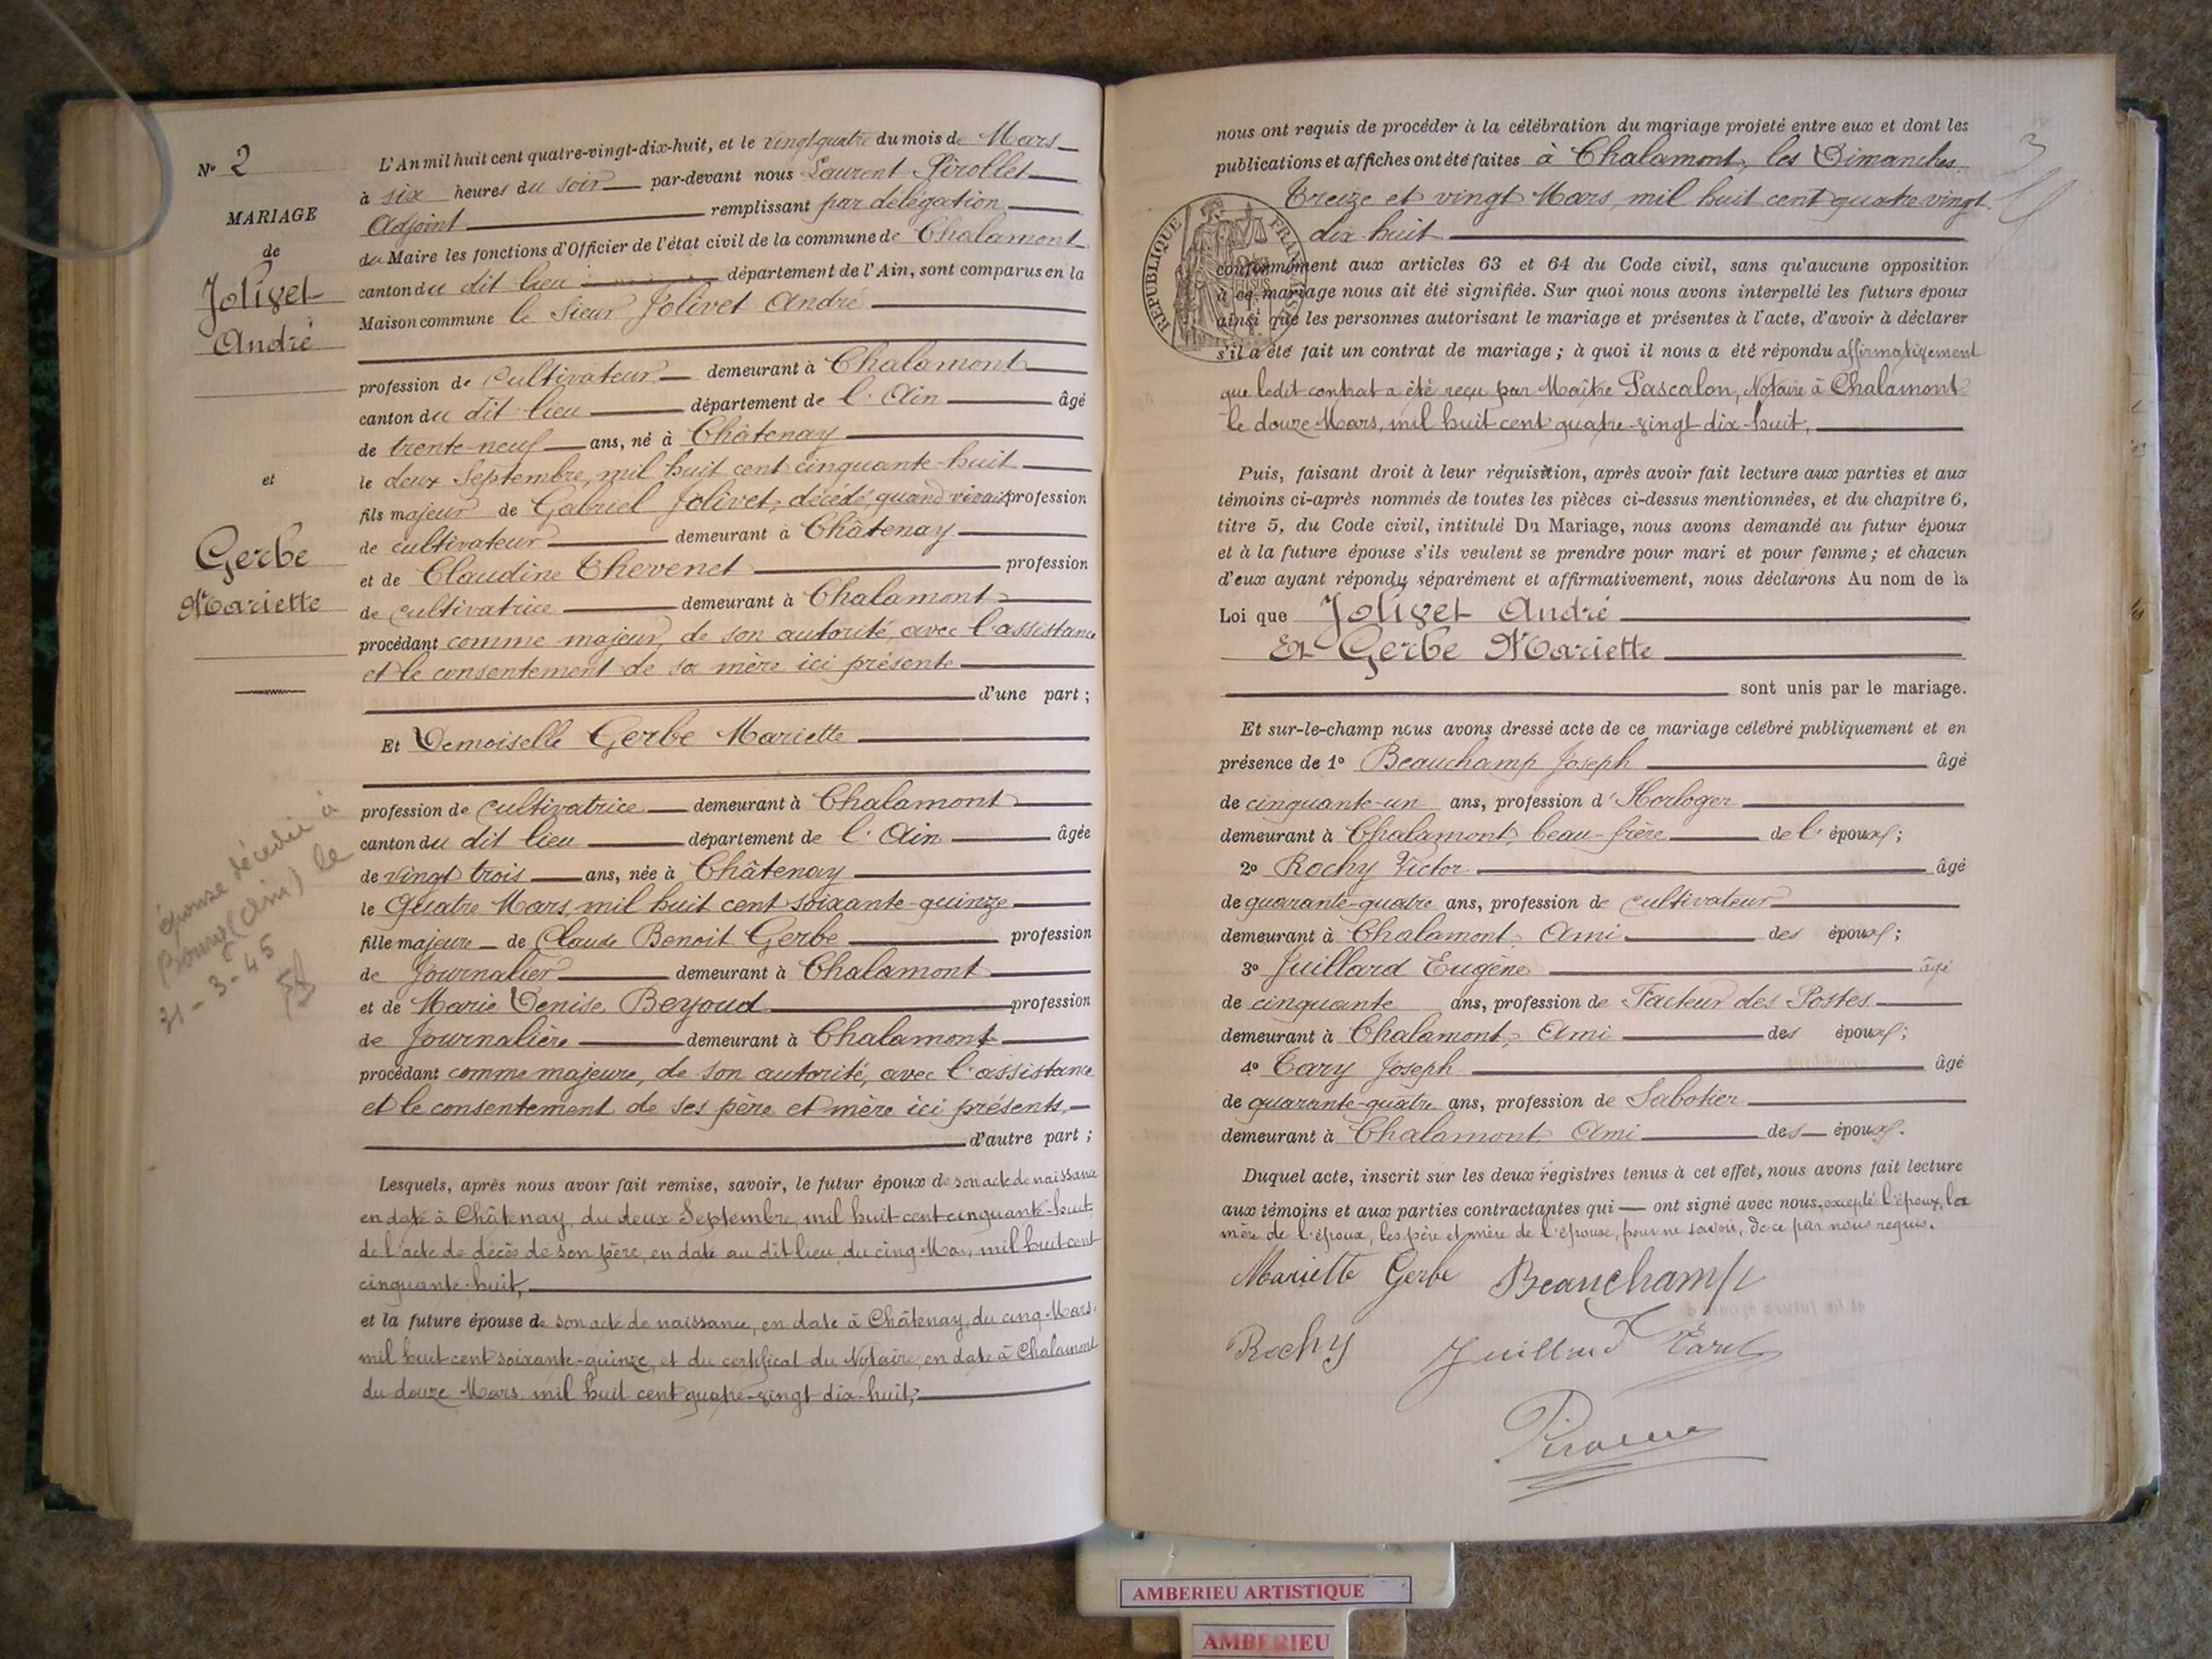 N° 2
MARIAGE
de
Jolivet
André
et
Gerbe
Mariette
épouse décédée à
Bourg (Ain) le
31-3-45
L'An mil huit cent quatre-vingt-dix-huit, et le vingt quatre du mois de Mars
à six heures du soir par-devant nous Laurent Pirollet
Adjoint remplissant par délégation
du Maire les fonctions d'Officier de l'état civil de la commune de Chalamont
canton du dit lieu département de l'Ain, sont comparus en la
Maison commune le Sieur Jolivet André
profession de Cultivateur demeurant à Chalamont
canton du dit lieu département de l'Ain âgé
de trente-neuf ans, né à Châtenay
le deux Septembre, mil huit cent cinquante-huit
fils majeur de Gabriel Jolivet, décédé, quand vivait profession
de cultivateur demeurant à Châtenay
et de Claudine Thevenet profession
de cultivatrice demeurant à Chalamont
procédant comme majeur, de son autorité, avec l'assistance
et le consentement de sa mère ici présente
d'une part ;
Et Demoiselle Gerbe Mariette
profession de Cultivatrice demeurant à Chalamont
canton du dit lieu département de l'Ain âgée
de vingt trois ans, née à Châtenay
le Quatre Mars, mil huit cent soixante-quinze
fille majeure de Claude Benoit Gerbe profession
de Journalier demeurant à Chalamont
et de Marie Denise Beyoud profession
de Journalière demeurant à Chalamont
procédant comme majeure, de son autorité, avec l'assistance
et le consentement de ses père et mère ici présents,
d'autre part ;
Lesquels, après nous avoir fait remise, savoir, le futur époux de son acte de naissance
en date à Châtenay, du deux Septembre, mil huit cent cinquante-huit,
de l'acte de décès de son père, en date au dit lieu, du cinq Mai, mil huit cent
cinquante-huit,
et la future épouse de son acte de naissance, en date à Châtenay, du cinq Mars,
mil huit cent soixante-quinze, et du certificat du Notaire, en date à Chalamont
du douze Mars, mil huit cent quatre-vingt dix-huit;
nous ont requis de procéder à la célébration du mariage projeté entre eux et dont les
publications et affiches ont été faites à Chalamont, les Dimanches
Treize et vingt Mars, mil huit cent quatre vingt
dix huit
RÉPUBLIQUE FRANÇAISE
conformément aux articles 63 et 64 du Code civil, sans qu'aucune opposition
à ce mariage nous ait été signifiée. Sur quoi nous avons interpellé les futurs époux
ainsi que les personnes autorisant le mariage et présentes à l'acte, d'avoir à déclarer
s'il a été fait un contrat de mariage ; à quoi il nous a été répondu affirmativement
que ledit contrat a été reçu par Maître Pascalon, Notaire à Chalamont
le douze Mars, mil huit cent quatre-vingt-dix-huit,
Puis, faisant droit à leur réquisition, après avoir fait lecture aux parties et aux
témoins ci-après nommés de toutes les pièces ci-dessus mentionnées, et du chapitre 6,
titre 5, du Code civil, intitulé Du Mariage, nous avons demandé au futur époux
et à la future épouse s'ils veulent se prendre pour mari et pour femme ; et chacun
d'eux ayant répondu séparément et affirmativement, nous déclarons Au nom de la
Loi que Jolivet André
Et Gerbe Mariette
sont unis par le mariage.
Et sur-le-champ nous avons dressé acte de ce mariage célébré publiquement et en
présence de 1° Beauchamp Joseph âgé
de cinquante-un ans, profession d'Horloger
demeurant à Chalamont, beau-frère de l'époux ;
2° Rochy Victor âgé
de quarante-quatre ans, profession de cultivateur
demeurant à Chalamont, Ami des époux ;
3° Juillard Eugène âgé
de cinquante ans, profession de Facteur des Postes
demeurant à Chalamont, Ami des époux ;
4° Cary Joseph âgé
de quarante-quatre ans, profession de Sabotier
demeurant à Chalamont Ami des époux.
Duquel acte, inscrit sur les deux registres tenus à cet effet, nous avons fait lecture
aux témoins et aux parties contractantes qui ont signé avec nous, excepté l'époux, la
mère de l'époux, les père et mère de l'épouse, pour ne savoir, de ce par nous requis.
Mariette Gerbe Beauchamp
Rochy Juillard
AMBERIEU ARTISTIQUE
AMBERIEU